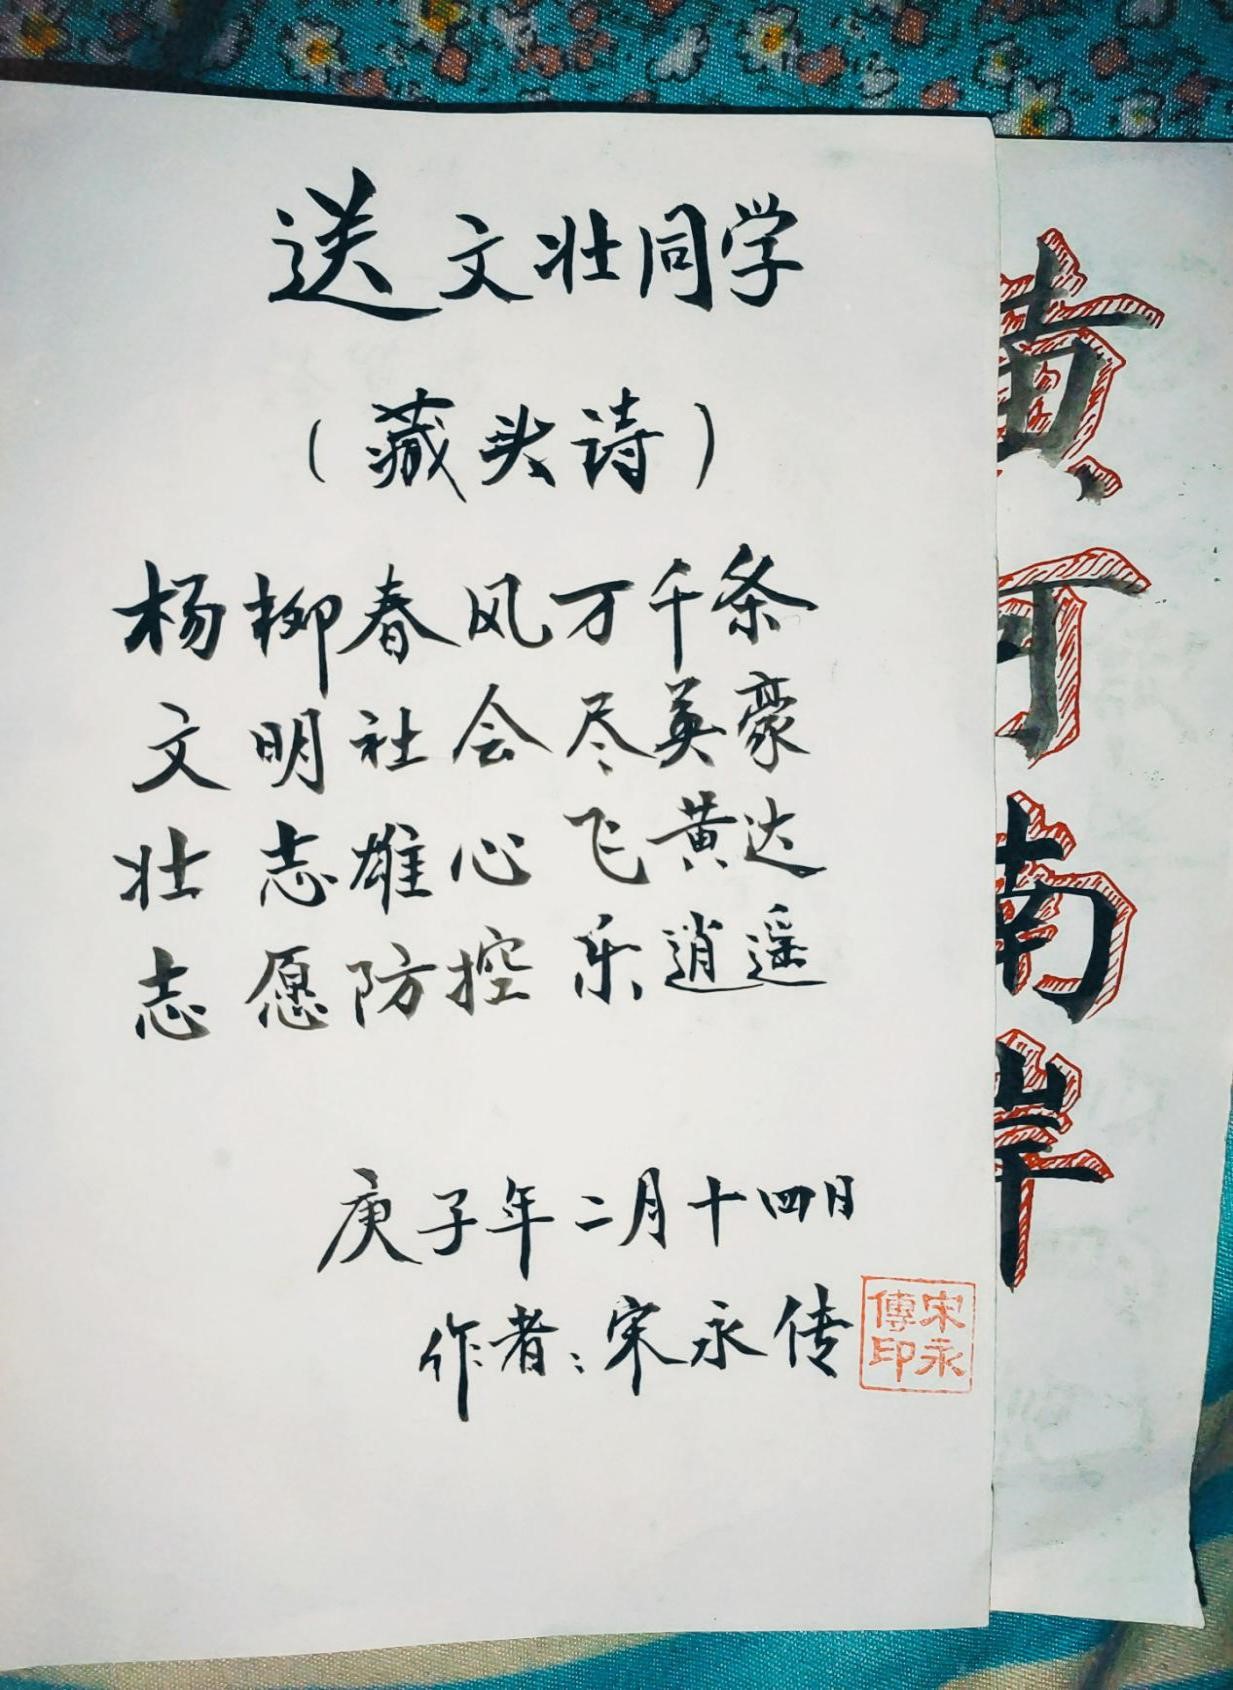 送文壮同学
（藏头诗）
杨柳春风万千条
文明社会尽英豪
壮志雄心飞黄达
志愿防控乐逍遥
庚子年二月十四日
作者：宋永传
宋永傳印
黄河南岸